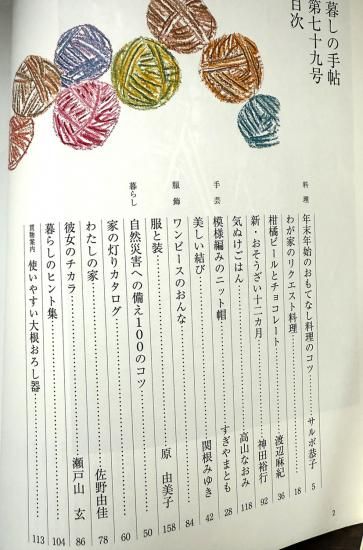 暮しの手帖
第七十九号
目次
料理 年末年始のおもてなし料理のコツ サルボ恭子 5
わが家のリクエスト料理 18
柑橘ピールとチョコレート 渡辺麻紀 36
新・おそうざい十二カ月 神田裕行 92
気ぬけごはん 高山なおみ 118
手芸 模様編みのニット帽 すぎやまとも 28
美しい結び 関根みゆき 42
服飾 ワンピースのおんな 84
服と装 原 由美子 158
暮らし 自然災害への備え100のコツ 50
家の灯りカタログ 60
わたしの家 佐野由佳 78
彼女のチカラ 瀬戸山 玄 86
暮らしのヒント集 104
買物案内 使いやすい大根おろし器 113
2